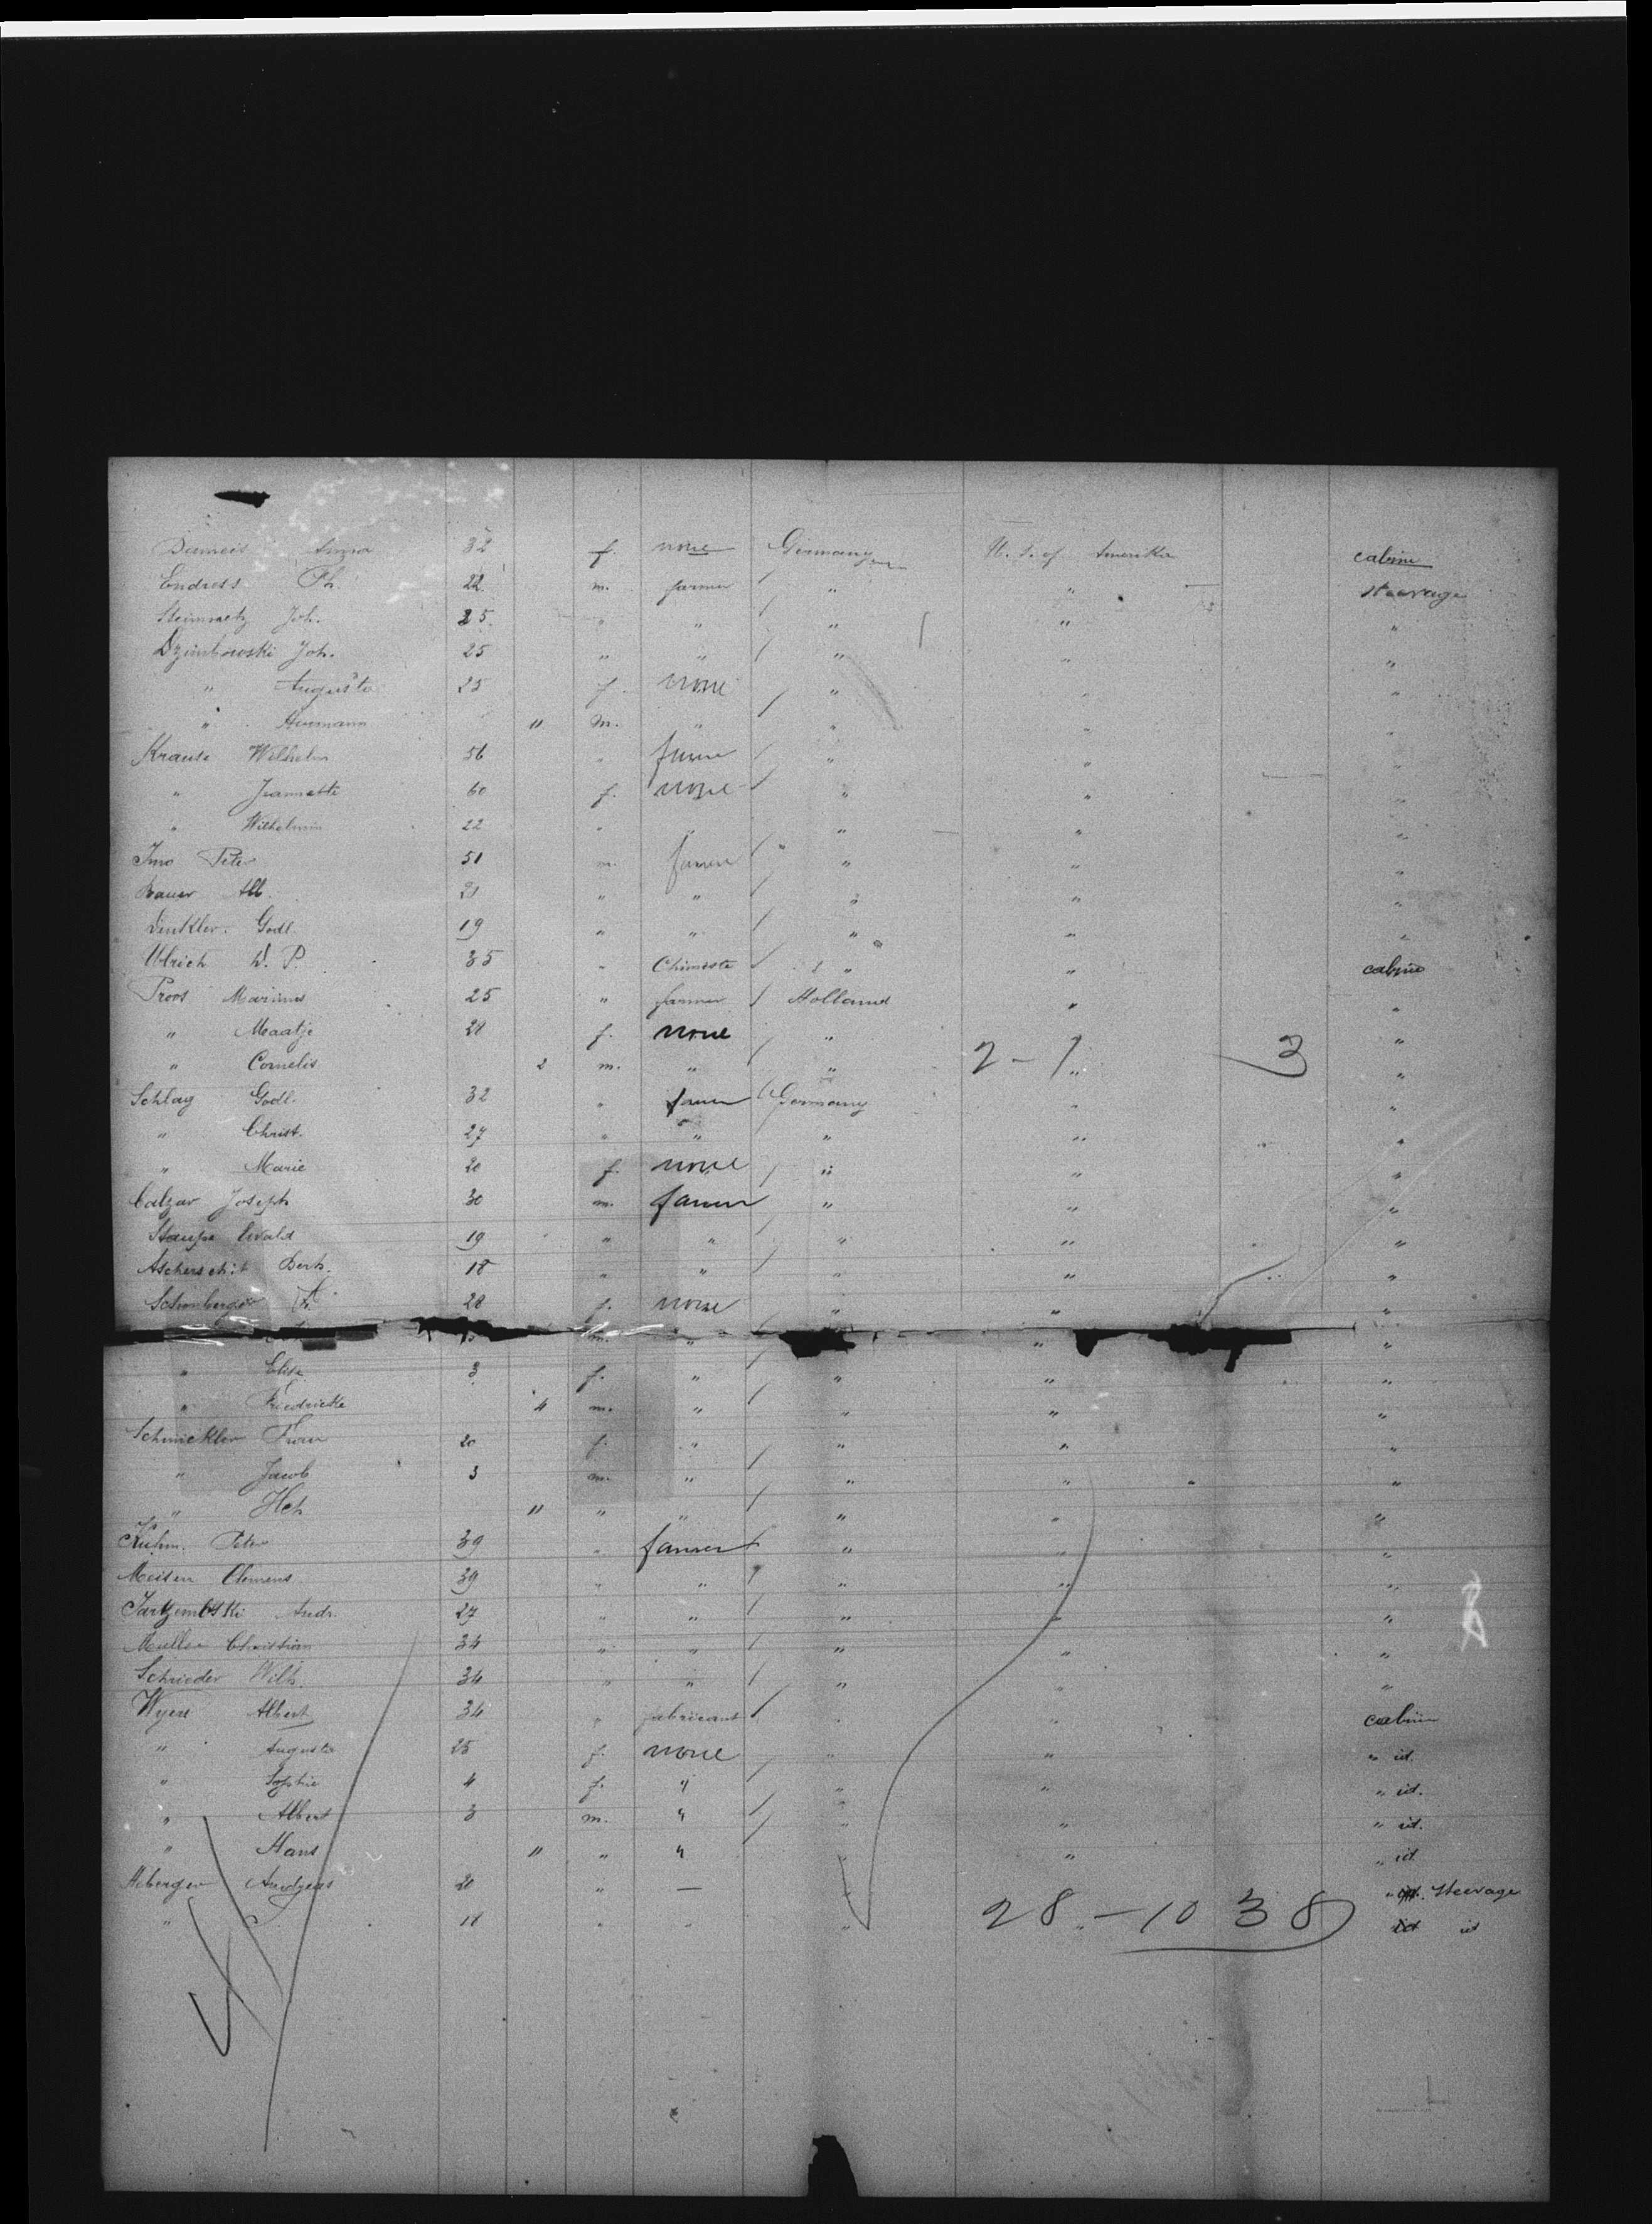 Anna 32 f. none Germany U. S. of Amerika cabine
Endress Ph. 22 m. farmer " " steerage
Steinmetz Joh. 25 " " " " "
Dzimbowski Joh. 25 " " " " "
" Augusta 25 f. none " " "
" Hermann 11 m. " " " "
Krause Wilhelm 56 " farmer " " "
" Jeannette 60 f. none " " "
" Wilhelmin 22 " " " " "
Imo Peter 51 m. farmer " " "
Bauer Alb. 21 " " " " "
Denkler Godl. 19 " " " " "
Ulrich W. P. 35 " Chimiste " " cabine
Proos Marinus 25 " farmer Holland " "
" Maatje 28 f. none " " "
" Cornelis 2 m. " " 2 - 1 " 3 "
Schlag Godl. 32 " farmer Germany " "
" Christ. 27 " " " " "
" Marie 20 f. none " " "
Calzar Joseph 30 m. farmer " " "
Staupe Ewald 19 " " " " "
Bert. 18 " " " " "
Schonberger 28 f. none " " "
m. " " "
" Elise 3 f. " " " "
" Friedricke 4 m. " " " "
Schmickler 20 f. " " " "
" Jacob 3 m. " " " "
" Hch 11 " " " " "
Kuhm. Peter 39 " farmer " " "
Meisen Clemens 39 " " " " "
Andr. 27 " " " " "
Muller Christian 34 " " " " "
Schrieder Wilh. 34 " " " " "
Albert 34 " fabricant " " cabine
" Augusta 25 f. none " " " id.
" Sophie 4 f. " " " " id.
" Albert 3 m. " " " " id.
" Hans 11 " " " " " id.
Andreas 20 " — " " Steerage
" 18 " " " 28 - 10 38 id id